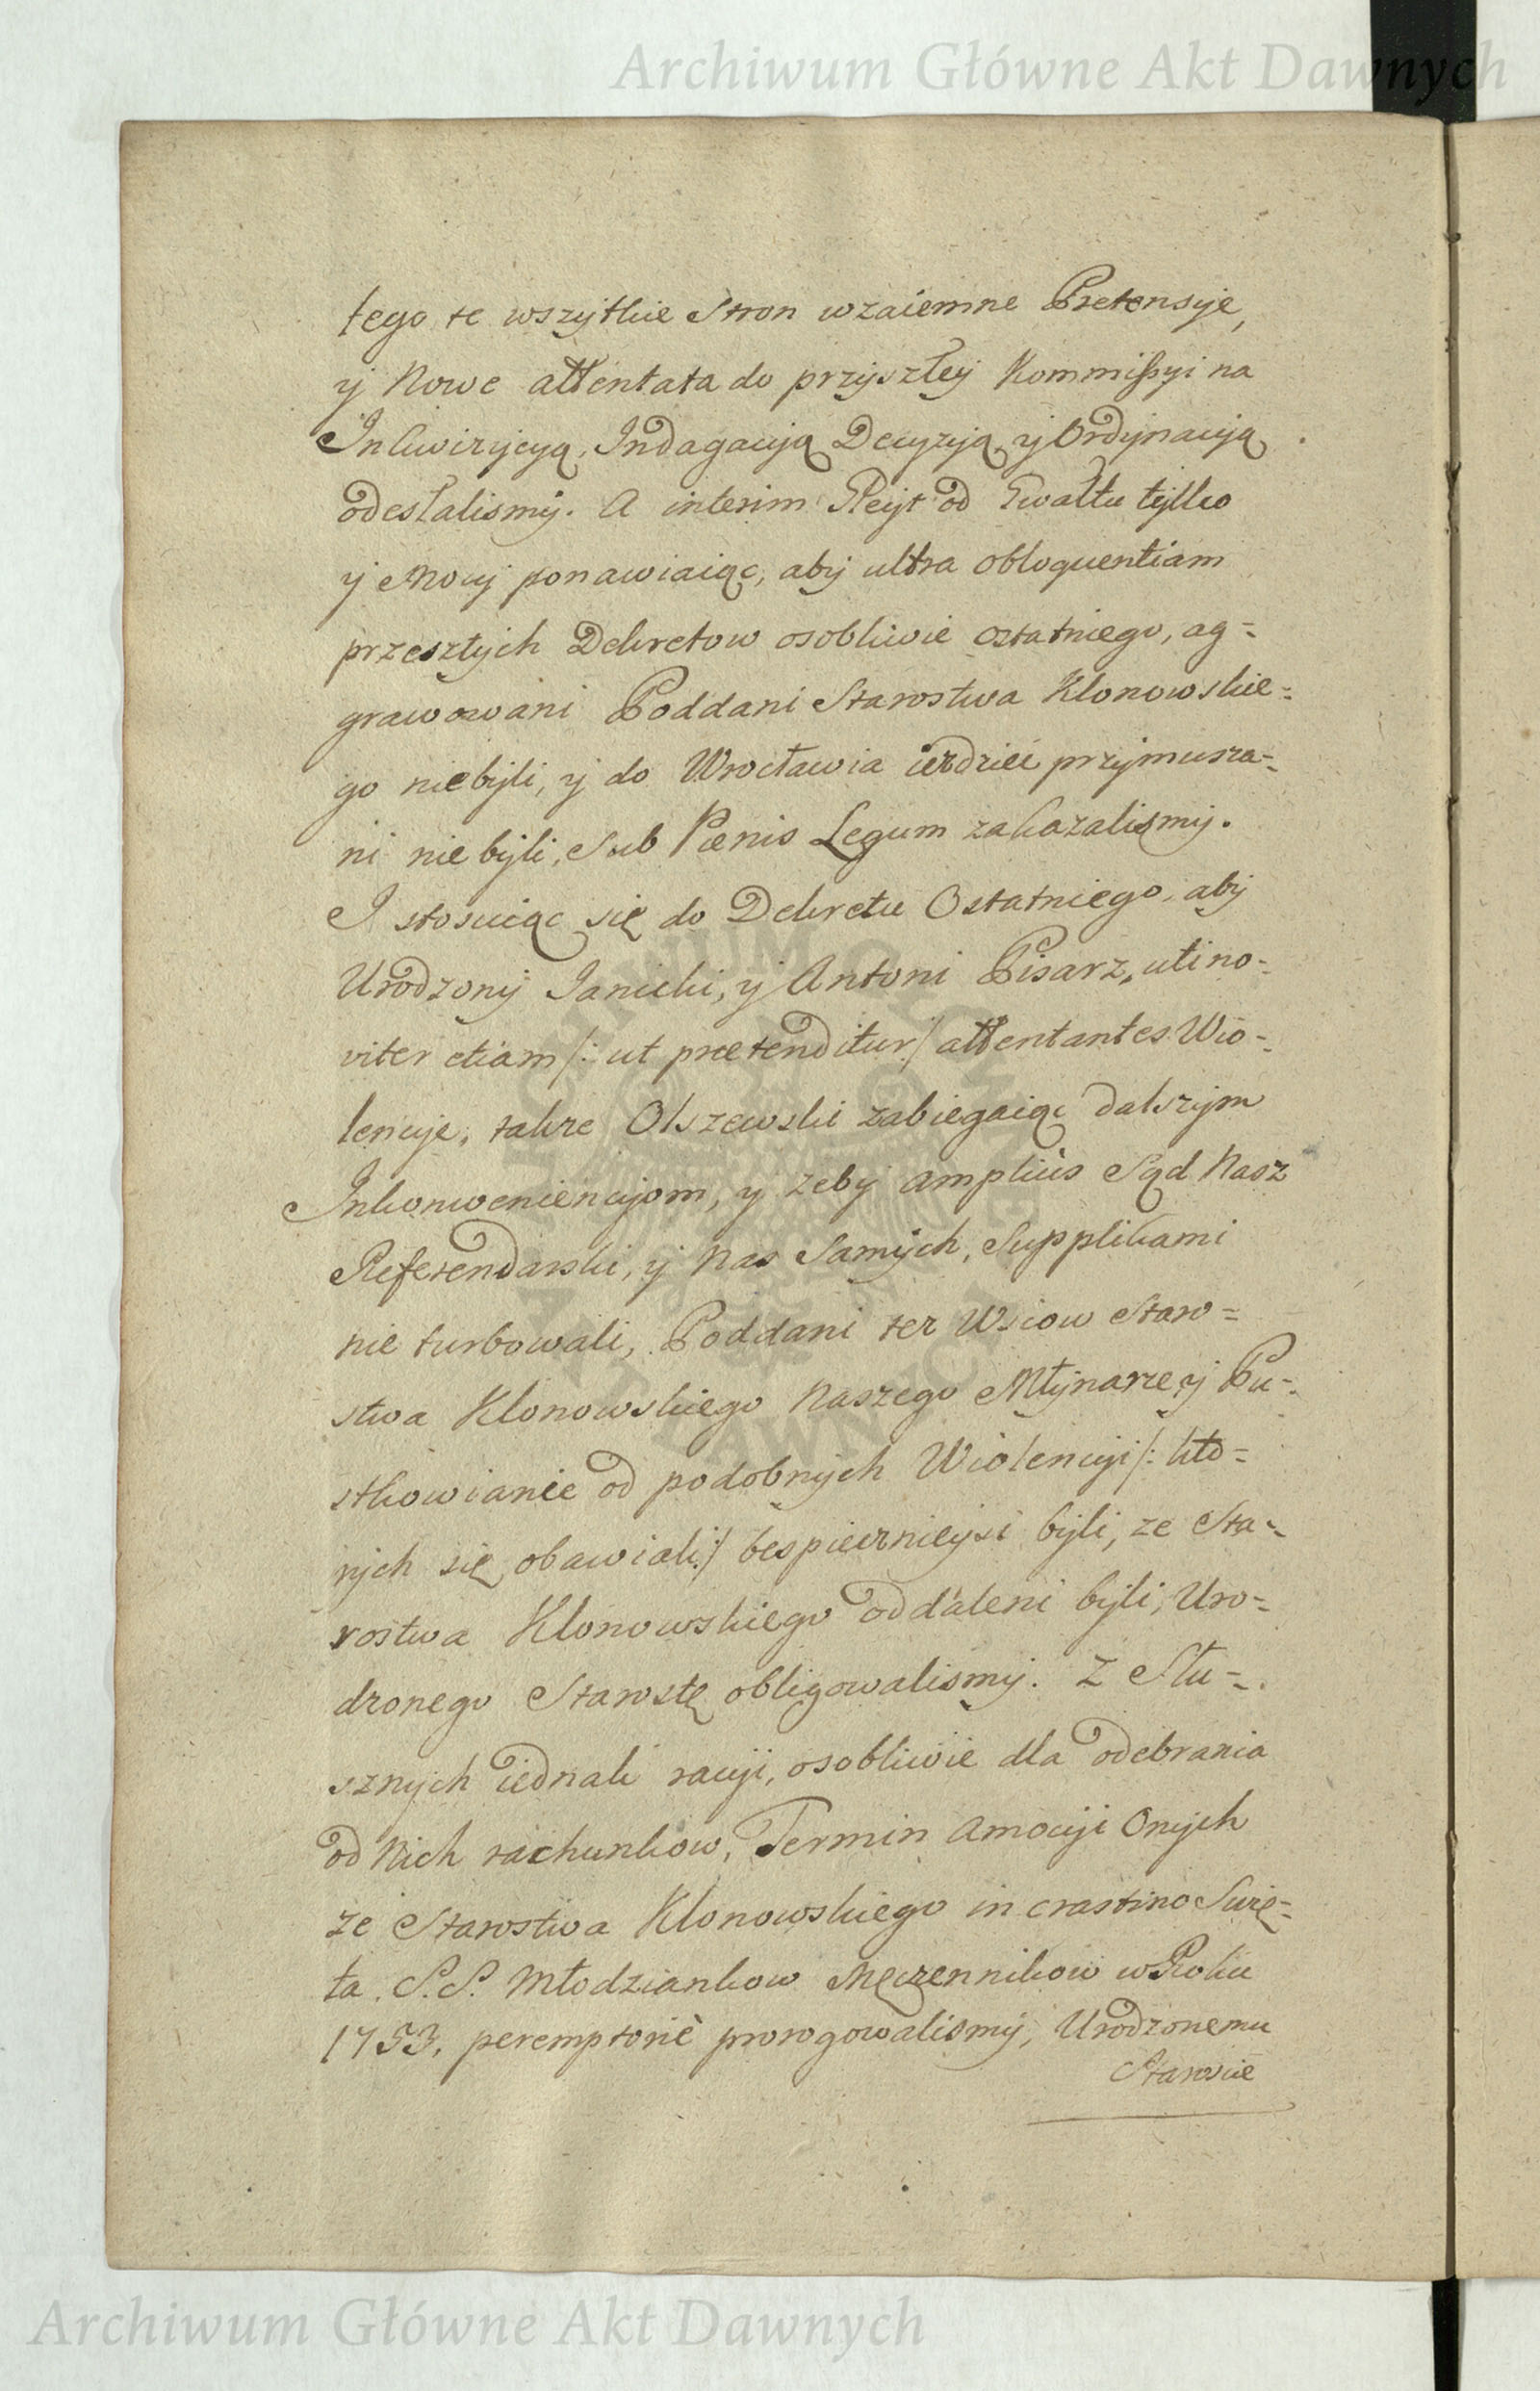 Archiwum Główne Akt Dawnych
tego te wszytkie Stron wzaiemne Pretensye,
y Nowe attentata do przyszłey Kommissyi na
Inkwizycyą, Indagacyą Decyzyą, y Ordynacyą
odesłalismy. A interim Gleyt od Gwałtu tylko
y Mocy ponawiaiąc, aby ultra obloquentiam
przeszłych Dekretow osobliwie ostatniego, ag=
grawowani Poddani Starostwa Klonowskie=
go niebyli, y do Wrocławia ieździć przymusza=
ni nie byli, Sub Pœnis Legum zakazalismy.
I stosuiąc się do Dekretu Ostatniego, aby
Urodzony Janicki, y Antoni Pisarz, uti no=
viter etiam /: ut prætenditur :/ attentantes Wio=
lencye, także Olszewski zabiegaiąc dalszym
Inkonweniencyom, y żeby ampliùs Sąd Nasz
Referendarski, y Nas Samych, Supplikami
nie turbowali, Poddani też Wsiow Staro=
stwa Klonowskiego Naszego Młynarze y Pu=
stkowianie od podobnych Wiolencyi /: kto=
rych się obawiali :/ bespiecznieysi byli, ze Sta=
rostwa Klonowskiego oddaleni byli, Uro=
dzonego Starostę obligowalismy. Z Słu=
sznych iednak racyi, osobliwie dla odebrania
od Nich rachunkow, Termin amocyi Onych
ze Starostwa Klonowskiego in crastino Swię=
ta S.S. Młodziankow Męczennikow w Roku
1753, peremptoriè prorogowalismy, Urodzonemu
Staroście
Archiwum Główne Akt Dawnych